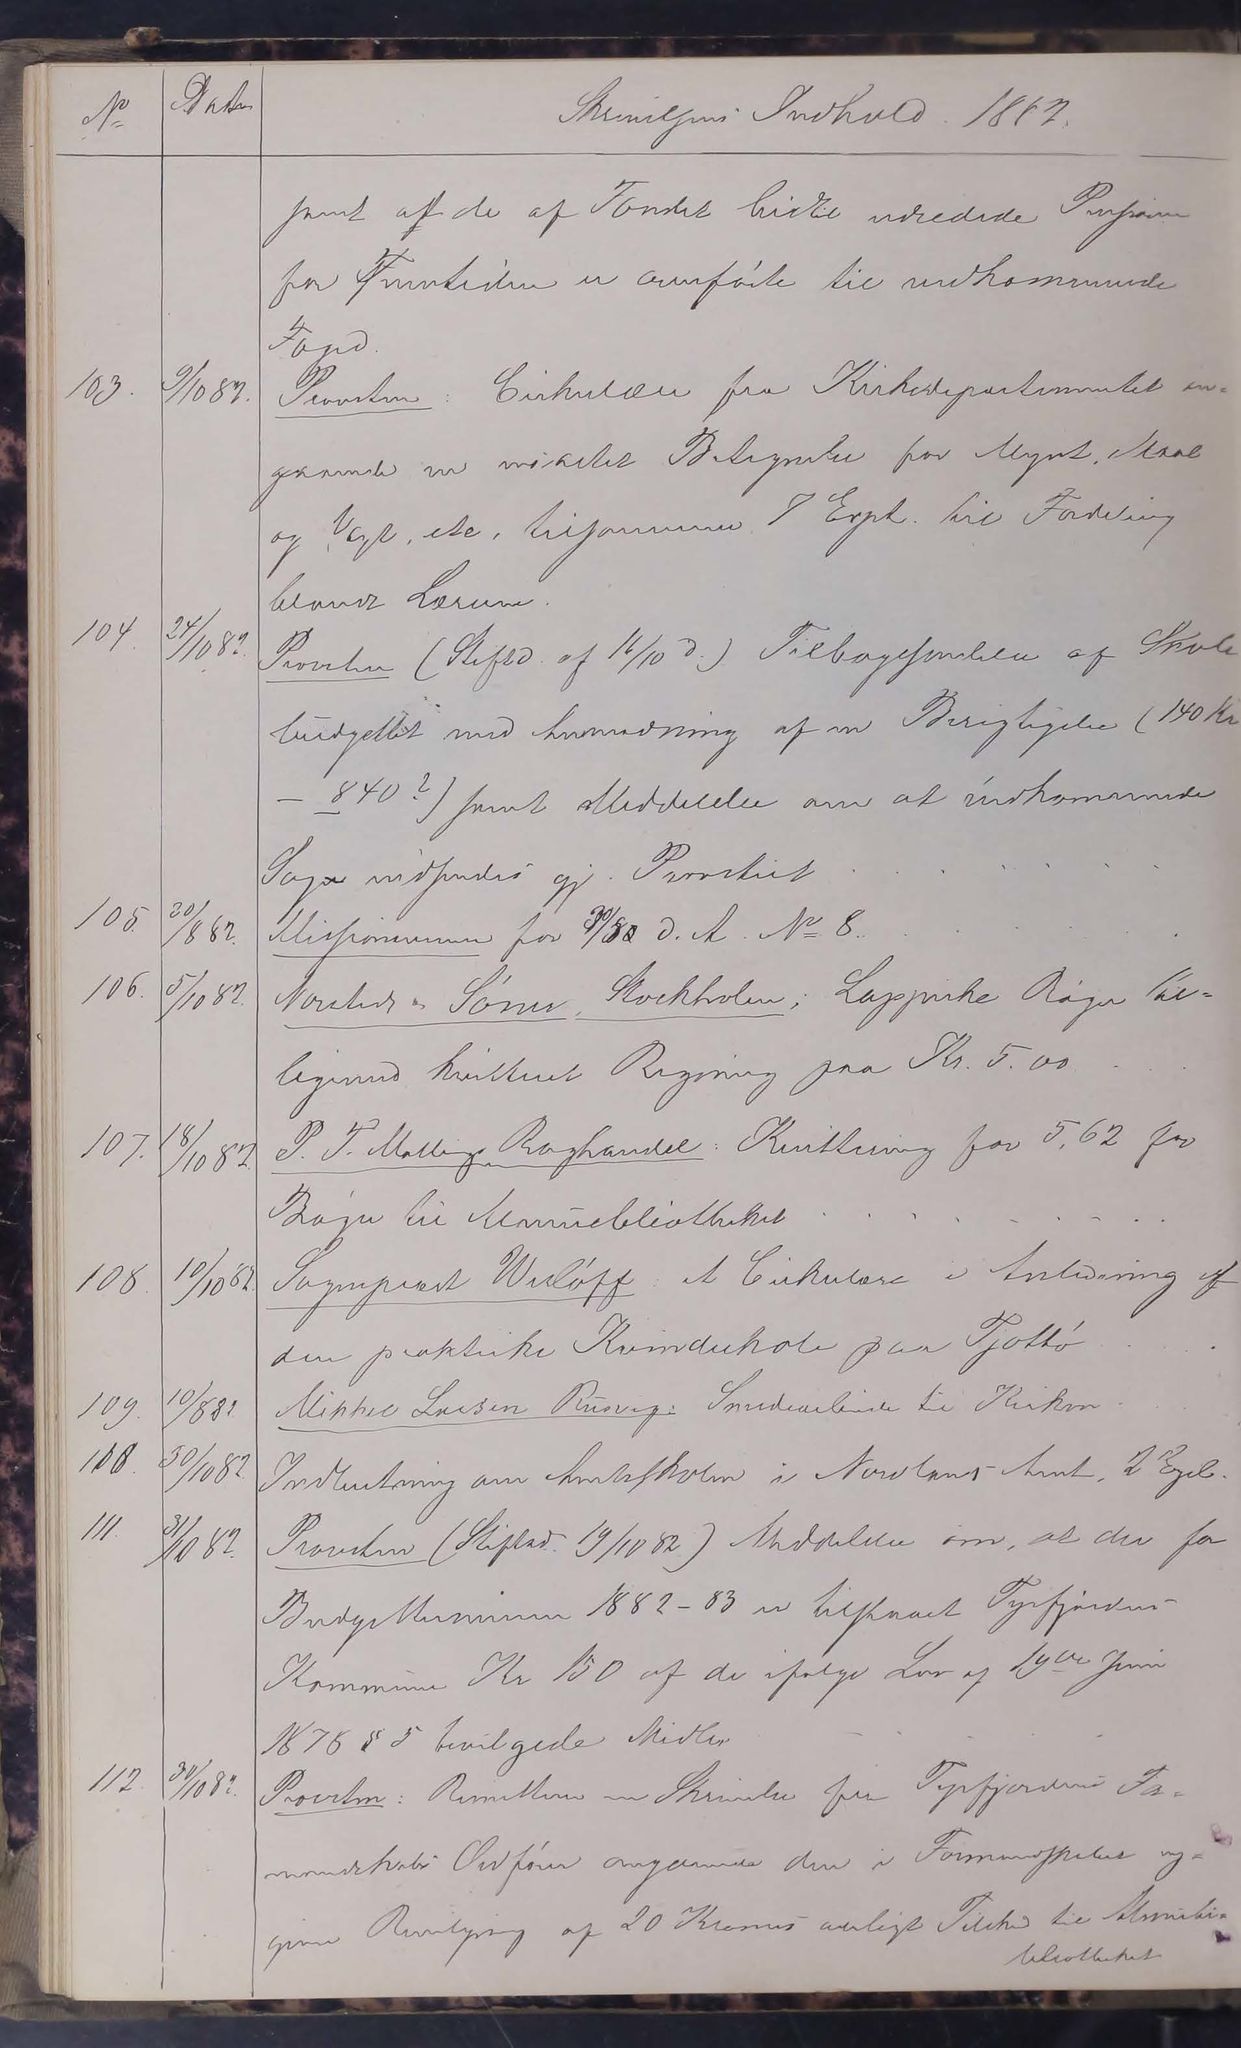 No Datum Skrivelsens Indhold. 1882.
samt af de af Fondet hidtil udredede Pensioner
for Fremtiden er overførte til vedkommende
Fond.
103. 9/10 82. Provsten: Cirkulære fra Kirkedepartementet an-
gaaende en indført Betegnelse for Mynt, Maal
og Vægt, etc, tilsammen 7 Expl. til Fordeling
blandt Lærerne.
104. 24/10 82. Provsten (Stiftsd. af 16/10 d.) Tilbagesendelse af Skole
budgettet med Anmodning af en Berigtigelse (140 Kr
— 840?) samt Meddelelse om at vedkommende
Sager indsendes gj. Provstiet
105. 20/8 82. Missionsvennen for 30/8 d. A. No 8.
106. 5/10 82. Norstedt & Söner, Stockholm; Lappiske Bøger til-
ligemed kvitteret Regning paa Kr. 5.00
107. 18/10 82. P. T. Mallings Boghandel: Kvittering for 5,62 for
Bøger til Almuebibliotheket
108. 10/10 82. Sogneprest Wisløff: Et Cirkulære i Anledning af
den praktiske Kvindeskole paa Tjøttø
109. 10/8 82 Mikkel Larsen Rusvig: Smedearbeide til Kirken
110. 30/10 82. Indbetning om Amtsskolen i Nordlands Amt, 2 Expl.
111. 31/10 82. Provsten (Stiftsd. 19/10 82) Meddelelse om, at der for
Budgetterminen 1882-83 er tilstaaet Tysfjordens
Kommune Kr 150 af de ifølge Lov af 19de Juni
1878 § 5 bevilgede Midler
112. 30/10 82. Provsten: Remitterer en Skrivelse fra Tysfjordens For-
mandskabs Ordfører angaaende den i Formandskabet
af 20 Kroners aarligt Tilskud til Almue-
bibliotheket